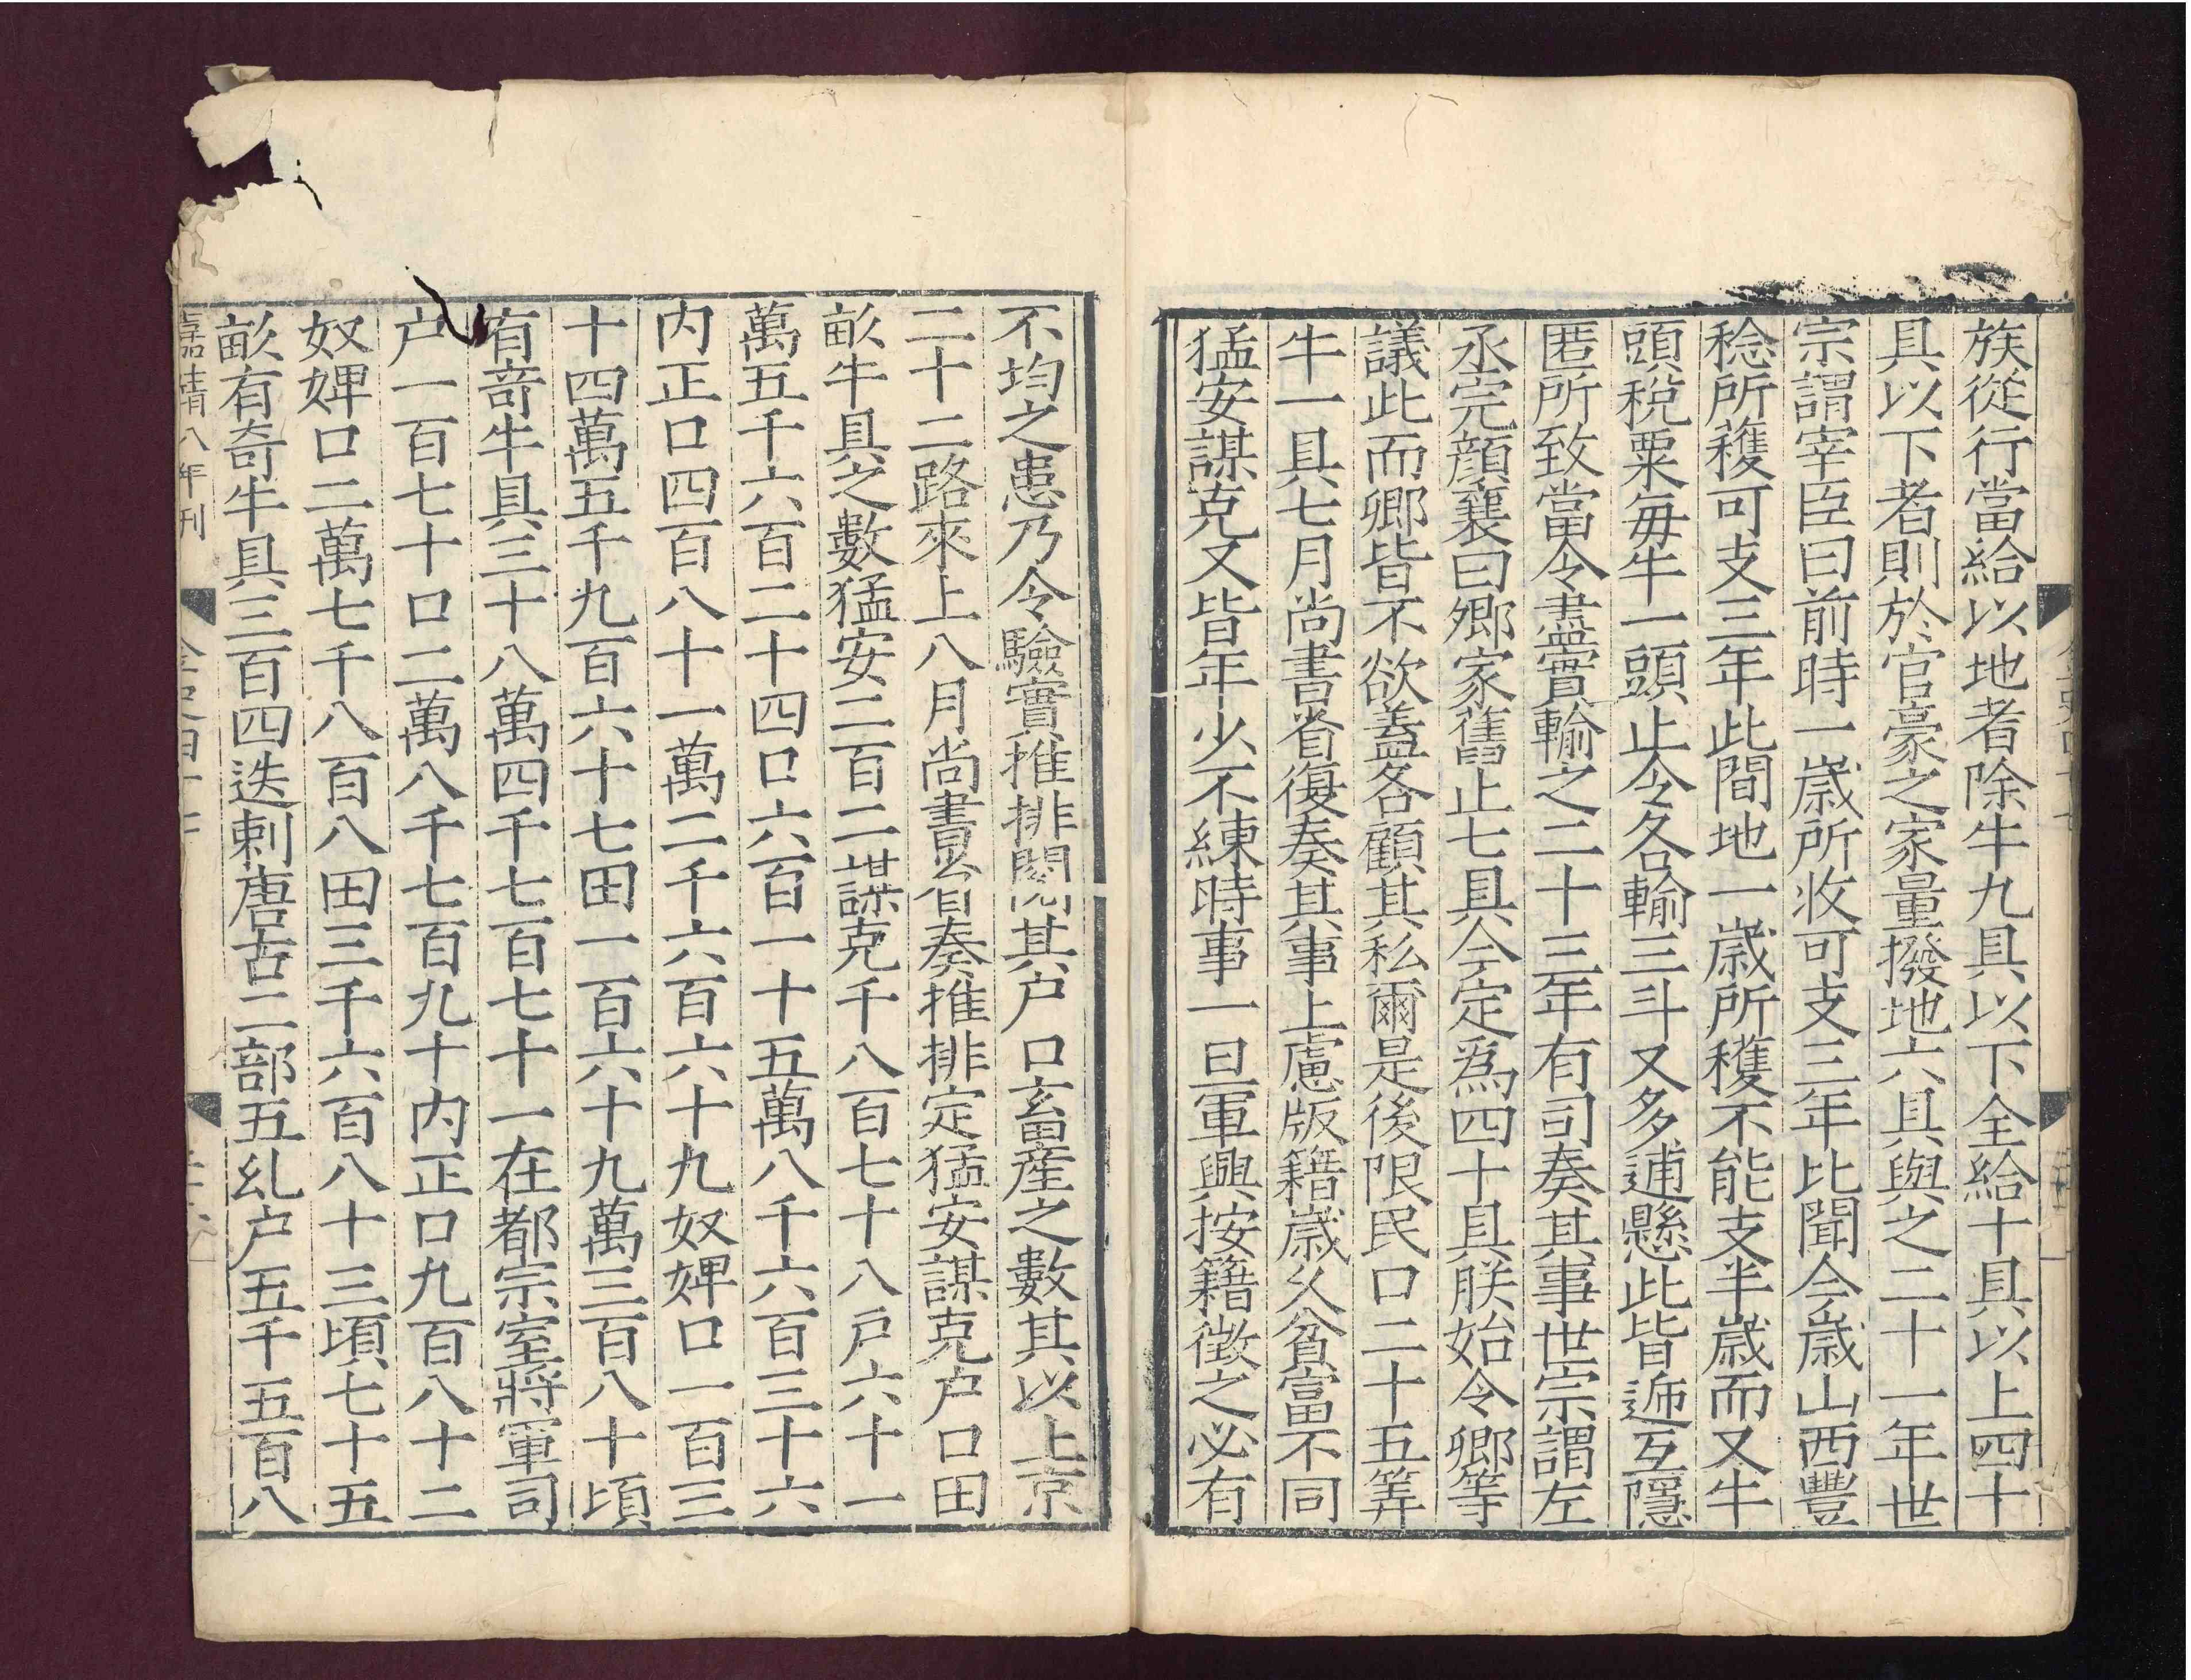 族從行當給以地者除牛九具以下全給十具以上四十
具以下者則於官豪之家量撥地六具與之二十一年世
宗謂宰臣曰前時一歲所收可支三年比聞今歲山西豐
稔所穫可支三年此間地一歲所穫不能支半歲而又牛
頭稅粟每牛一頭止令各輸三斗又多逋懸此皆遞互隱
匿所致當令盡實輸之二十三年有司奏其事世宗謂左
丞完顏襄曰卿家舊止七具今定為四十具朕始令卿等
議此而卿皆不欲蓋各顧其私爾是後限民口二十五筭
牛一具七月尚書省復奏其事上慮版籍歲久貧富不同
猛安謀克又皆年少不練時事一旦軍興按籍徵之必有
不均之患乃令驗實推排閱其户口畜產之數其以上京
二十二路來上八月尚書省奏推排定猛安謀克户口田
畝牛具之數猛安二百二謀克千八百七十八戸六十一
萬五千六百二十四口六百一十五萬八千六百三十六
内正口四百八十一萬二千六百六十九奴婢口一百三
十四萬五千九百六十七田一百六十九萬三百八十頃
有奇牛具三十八萬四千七百七十一在都宗室將軍司
户一百七十口二萬八千七百九十内正口九百八十二
奴婢口二萬七千八百八田三千六百八十三頃七十五
畝有奇牛具三百四迭剌唐古二部五乣户五千五百八
嘉靖八年刊